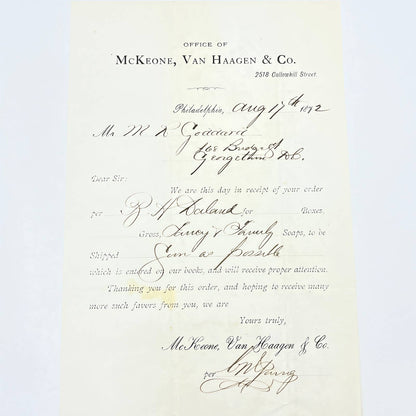 OFFICE OF
McKeone, Van Haagen & Co.
2518 Callowhill Street.
Philadelphia, Aug 17th 1892
Mr. M R Goddard
Bridge St
Georgetown D.C.
Dear Sir:
We are this day in receipt of your order
per R H Dorland for Boxes,
Gross, Fancy & Family Soaps, to be
Shipped Soon as possible
which is entered on our books, and will receive proper attention.
Thanking you for this order, and hoping to receive many
more such favors from you, we are
Yours truly,
McKeone, Van Haagen & Co.
per Young